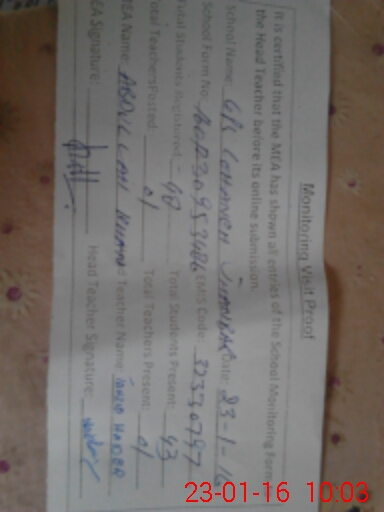 Monitoring Visit Proof
It is certified that the MEA has shown all entries of the School Monitoring Form
the Head Teacher before its online submission.
School Name: G/PS Date: 23-1-16
School Form No: EMIS Code:
Total Students Registered: 48 Total Students Present: 43
Total Teachers Posted: 01 Total Teachers Present: 01
EA Name: ABDULLAH KHAN Head Teacher Name: HAIDER
EA Signature: Head Teacher Signature:
23-01-16 10:03